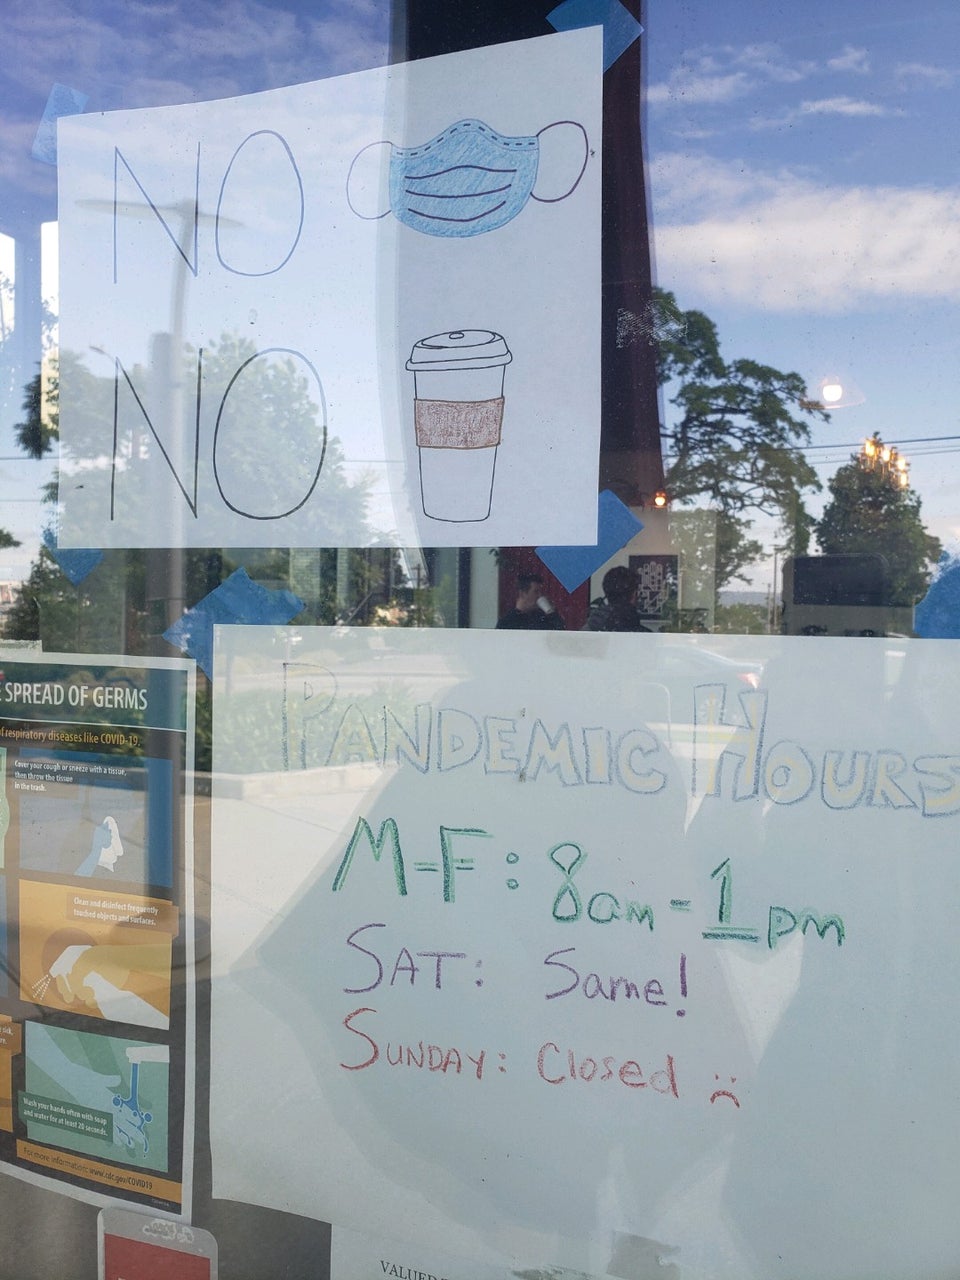 NO
NO
SPREAD OF GERMS
of respiratory diseases like COVID-19.
Cover your cough or sneeze with a tissue,
then throw the tissue
in the trash.
Clean and disinfect frequently
touched objects and surfaces.
sick,
Wash your hands often with soap
and water for at least 20 seconds.
For more information: www.cdc.gov/COVID19
PANDEMIC HOURS
M-F: 8am-1pm
SAT: Same!
SUNDAY: Closed
VALUED